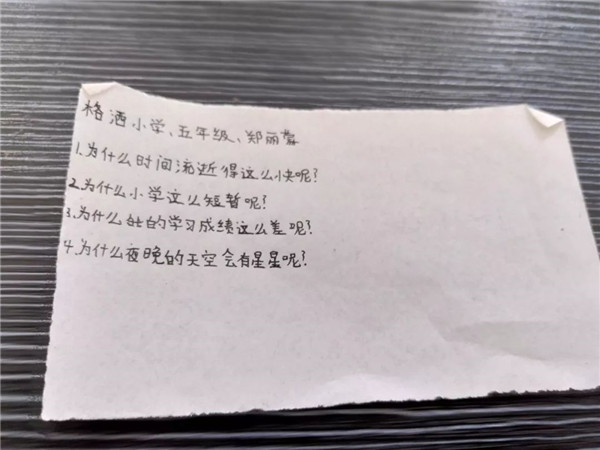 格洒小学、五年级、郑丽蓉
1.为什么时间流逝得这么快呢?
2.为什么小学这么短暂呢?
3.为什么的学习成绩这么差呢?
4.为什么夜晚的天空会有星星呢?